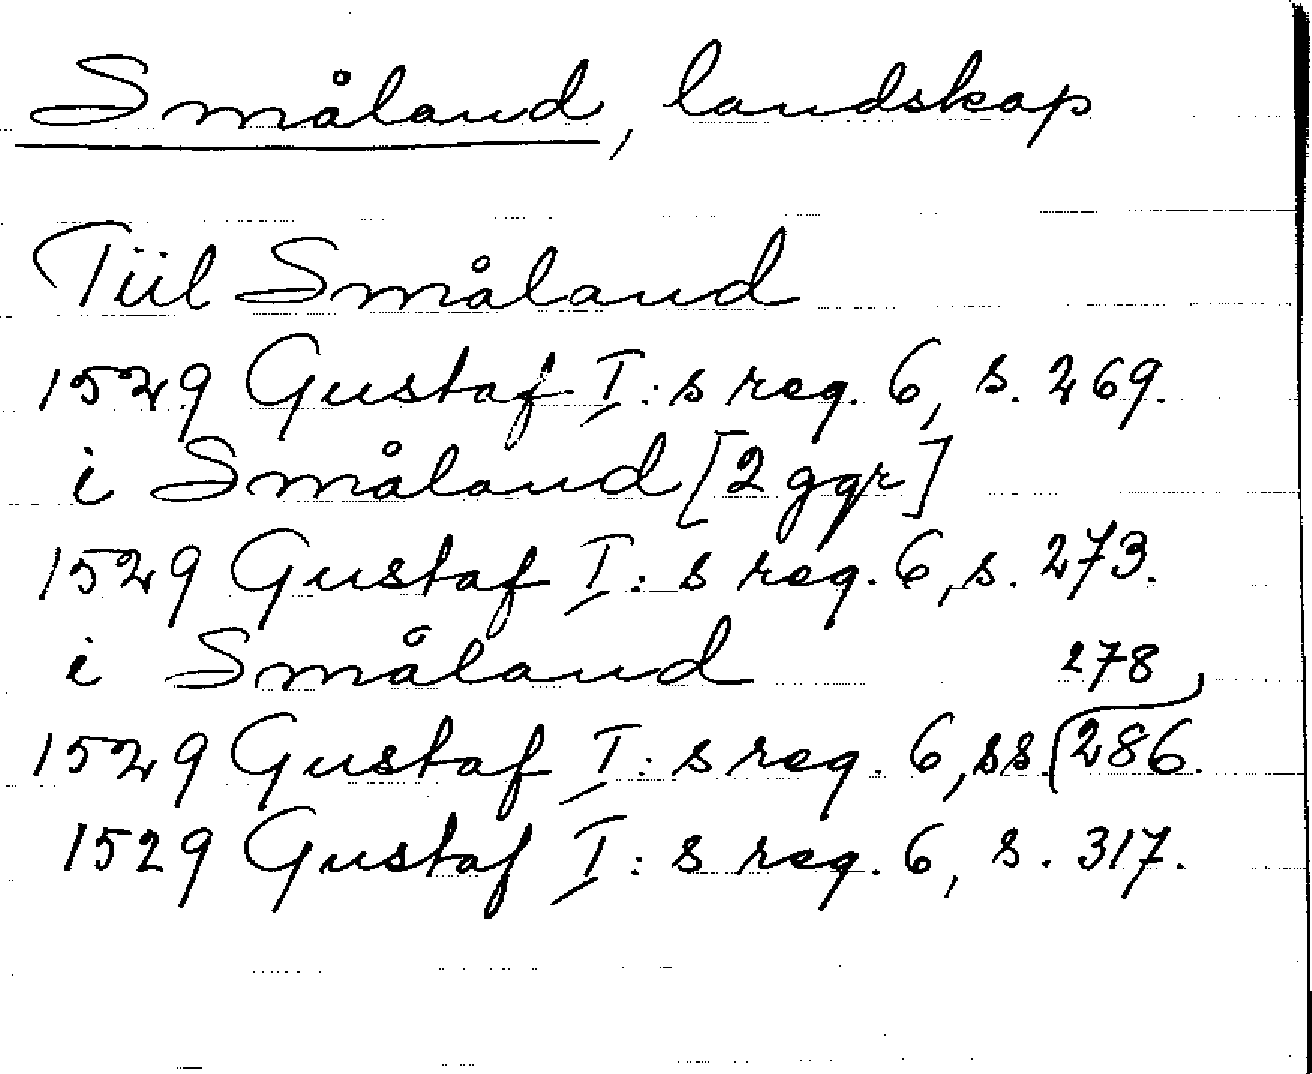 Småland, landskap
Tiil Småland
1529 Gustaf I:s reg. 6, s. 269.
i Småland [2 ggr]
1529 Gustaf I:s reg. 6, s. 273.
i Småland 278,
1529 Gustaf I:s reg. 6, ss. 286.
1529 Gustaf I:s reg. 6, s. 317.